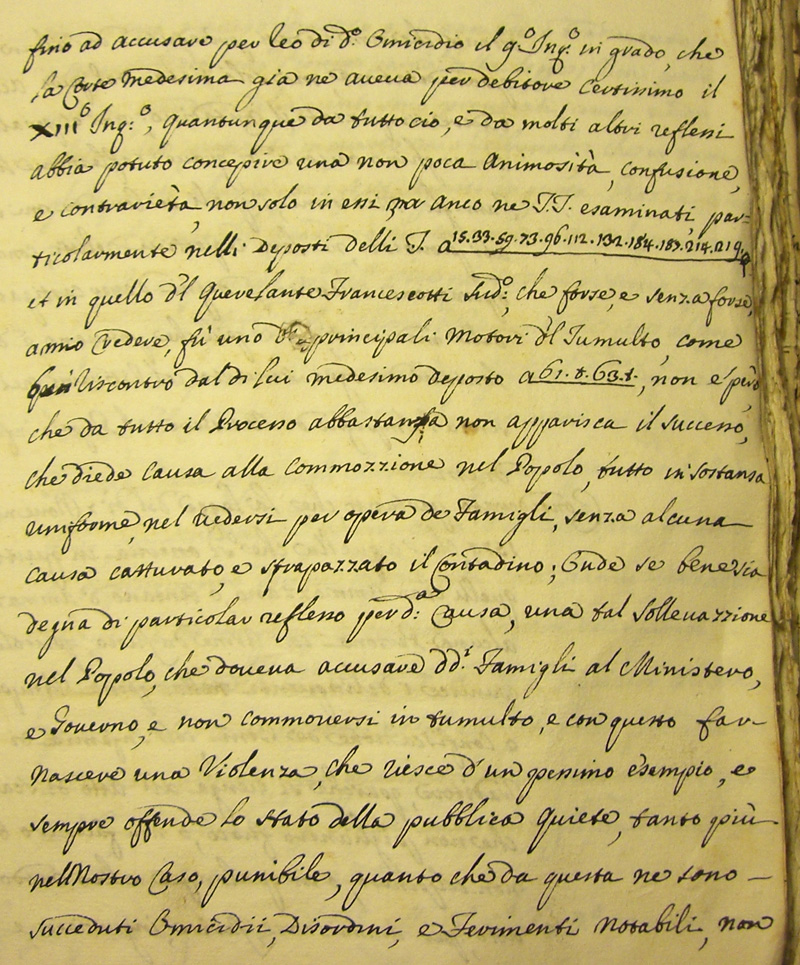 fino ad accusare per Reo di d.º Omicidio il 9º Inq.º in grado, che
la Corte Medesima già ne aveva per debitore Certissimo il
XIIIº Inq:º, quantunque da tutto ciò, e da molti altri reflessi
abbia potuto concepire una non poca Animosità, confusione,
e contrarietà, non solo in essi ma anco ne T.T. esaminati, par-
ticolarmente nelli Deposti delli T. a 15.33.59.73.96.112.132.184.187.214.219
et in quello d'l Querelante Francescotti Sud.º, che forse, e senza forse,
a mio vedere, fù uno de principali Motori d'l Tumulto, come
riscontro dal di lui medesimo deposto a 61.t.63.t., non è però
che da tutto il Processo abbastanza non apparisca il successo,
che diede Causa alla Commozzione nel Popolo, tutto in sostanza
uniforme, nel vedersi per opera de Famigli, senza alcuna
Causa catturato, e strapazzato il Contadino; Onde se bene sia
degna di particolar reflesso per d:ª Causa, una tal Sollevazzione
nel Popolo, che doveva accusare dd.i Famigli al Ministero,
e Governo, e non commoversi in tumulto, e con questo far
Nascere una Violenza, che riesce d'un pessimo esempio, e
sempre offende lo stato della pubblica Quiete, tanto più
nel Nostro Caso, punibile, quanto che da questa ne sono
succeduti Omicidii, Disordini, e Ferimenti Notabili, non